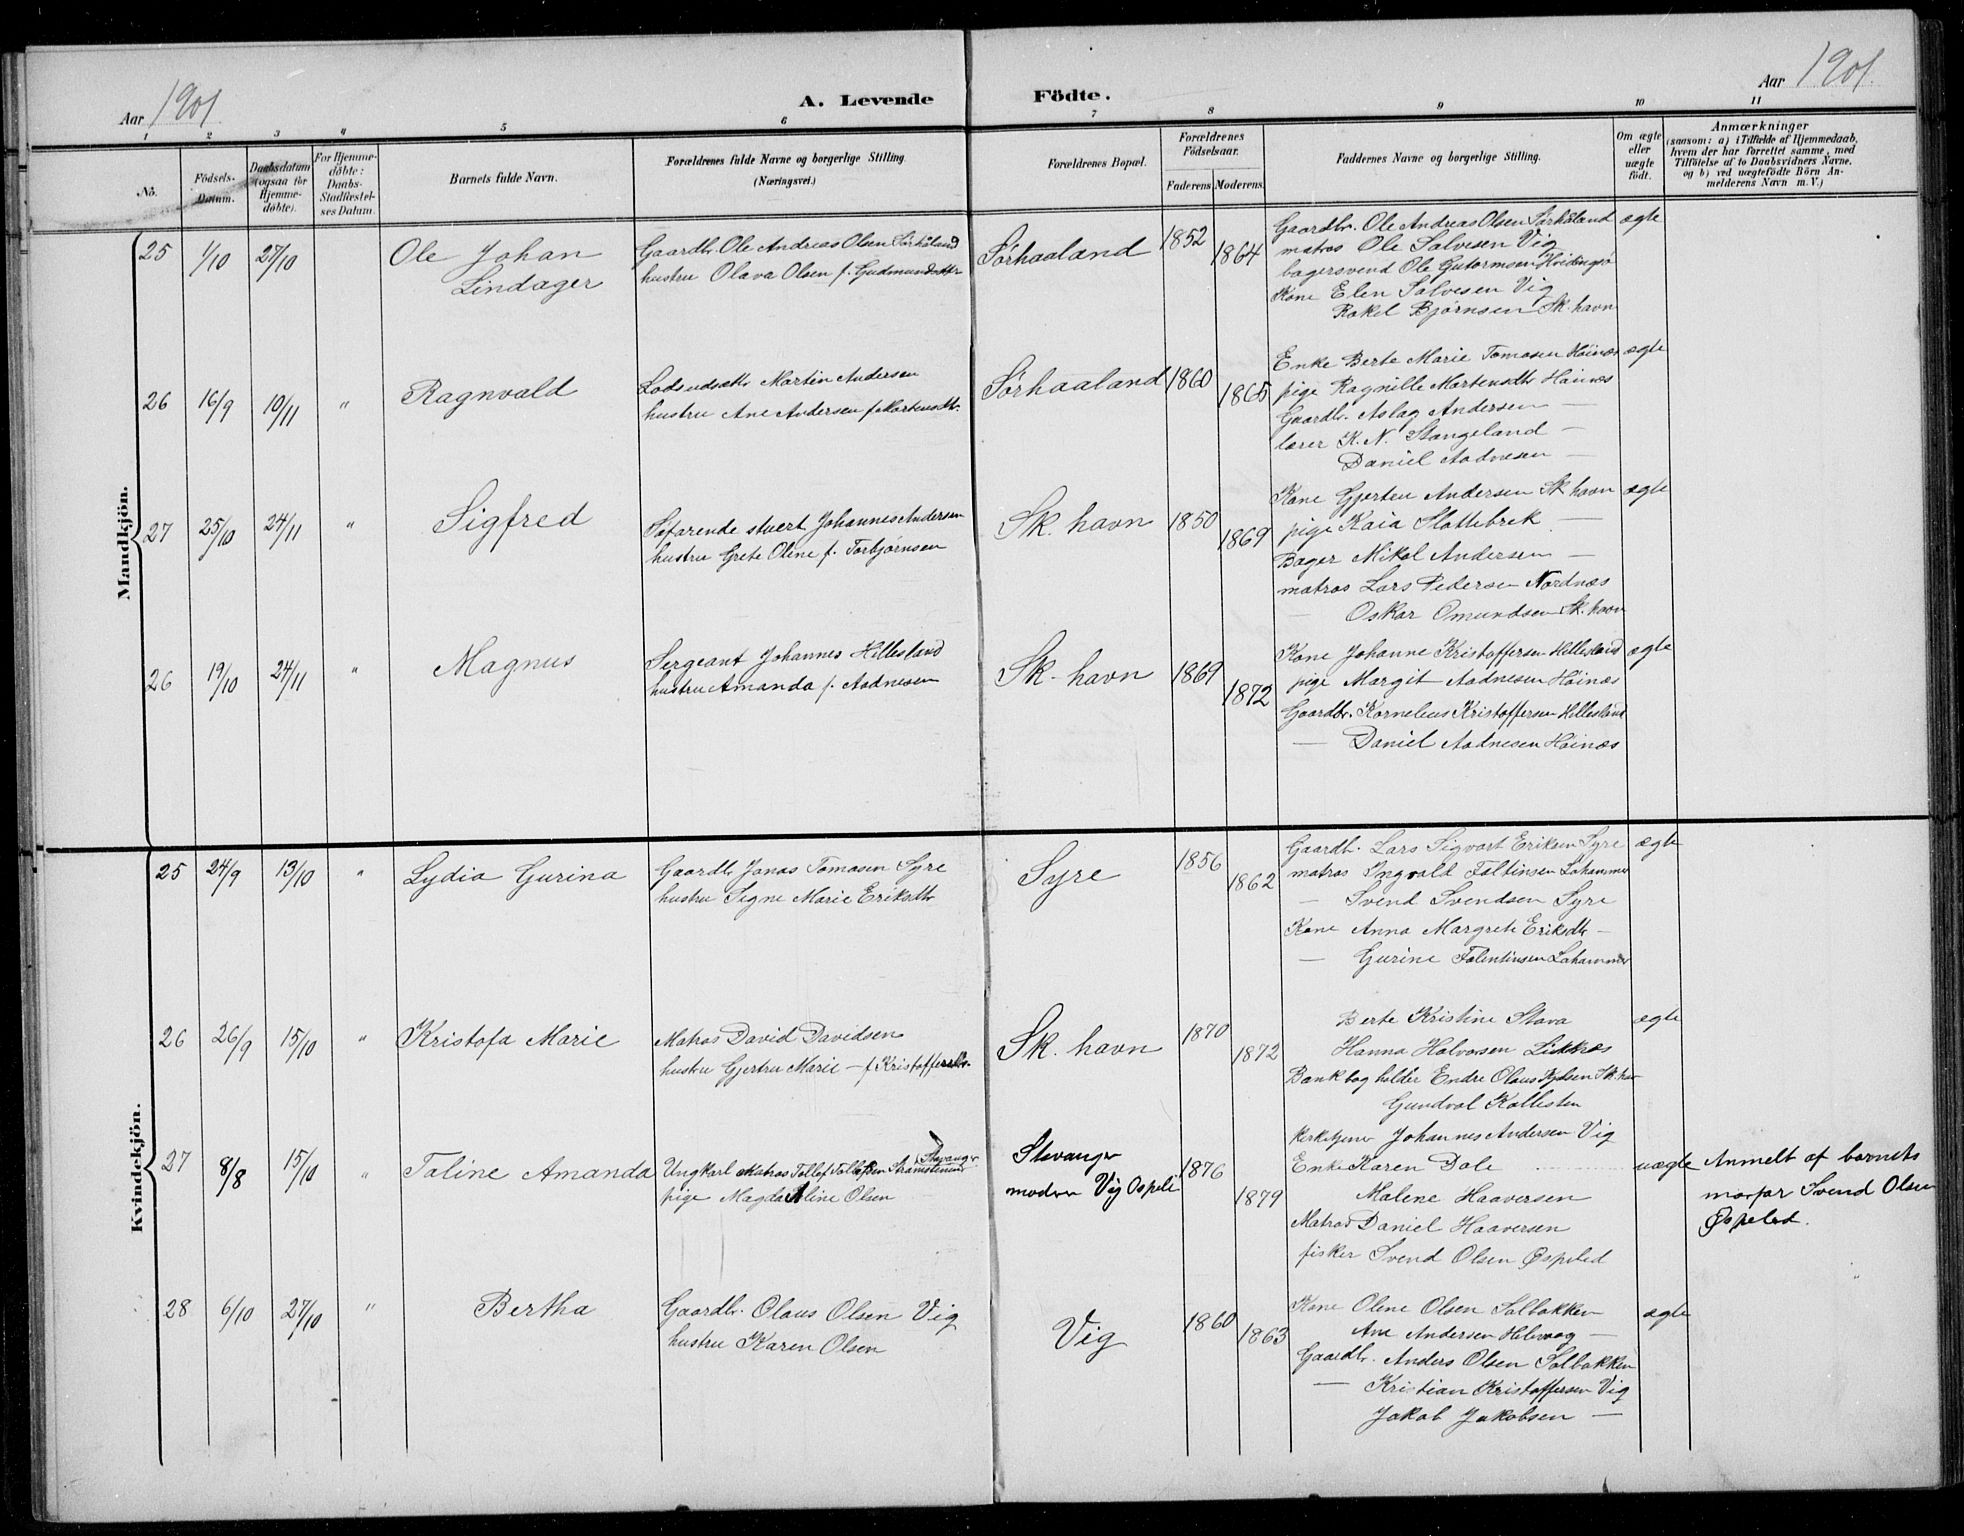 Aar 1901
A. Levende
Födte.
Aar 1901.
1 2 3 4 5 6 7 8 9 10 11
No.
Födsels-
Datum.
Daabsdatum
(ogsaa for
Hjemme-
døbte).
For Hjemme-
døbte:
Daabs-
Stadfæstel-
ses Datum.
Barnets fulde Navn.
Forældrenes fulde Navne og borgerlige Stilling.
(Næringsvei.)
Forældrenes Bopæl.
Forældrenes
Födselsaar.
Faderens Moderens
Faddernes Navne og borgerlige Stilling.
Om ægte
eller
uægte
födt.
Anmærkninger
(saasom: a) i Tilfælde af Hjemmedaab,
hvem der har forrettet samme, med
Tilföielse af to Daabsvidners Navne,
og b) ved uægtefödte Börn An-
melderens Navn m. V.)
Mandkjön.
25 1/10 27/10
Ole Johan
Lindager
Gaardbr. Ole Andreas Olsen Sørhåland
hustru Olava Olsen f. Gudmundsdtr
Sørhaaland
1852
1864
Gaardbr. Ole Andreas Olsen Sørhåland
matros Ole Salvesen Vig
bagersvend Ole Gutormsen Hvidingsø
Kone Elen Salvesen Vig
Rakel Bjørnsen Sk. havn
ægte
26 16/9 10/11 "
Ragnvald
Lodsudsætr Martin Andersen
hustru Ane Andersen f. Mortensdtr.
Sørhaaland
1860
1865
Enke Berte Marie Tomasen Høinæs
pige Ragnille Mortensdtr Høinæs
Gaardbr. Aslag Andersen —
lærer K. N. Stangeland —
Daniel Aadnesen —
ægte
27 25/10 24/11 "
Sigfred
Søfarende stuert Johannes Andersen
hustru Grete Oline f. Torbjørnsen
Sk. havn
1850
1869
Kone Gjertru Andersen Sk havn
pige Kaia Slottebrek —
Bager Mikal Andersen —
matros Lars Pedersen Nordnæs
— Oskar Omundsen Sk. havn
ægte
26 19/10 24/11 "
Magnus
Sergeant Johannes Hillesland
hustru Amanda f. Aadnesen
Sk. havn
1869
1872
Kone Johanne Kristoffersen Hillesland
pige Margit Aadnesen Høinæs
Gaardbr. Kornelius Kristoffersen Hillesland
— Daniel Aadnesen Høinæs
ægte
Kvindekjön.
25 24/9 13/10 "
Lydia Gurina
Gaardbr Jonas Tomasen Syre
hustru Signe Marie Eriksdtr
Syre
1856
1862
Gaardbr. Lars Sigvart Eriksen Syre
matros Ingvald Faltinsen Lahammer
— Svend Svendsen Syre
Kone Anna Margrete Eriksdtr —
— Gurine Falentinsen Lahammer
ægte
26 26/9 15/10 "
Kristofa Marie
Matros David Davidsen
hustru Gjertru Marie — f. Kristoffersdtr.
Sk. havn
1870
1872
Berte Kristine Stava
Hanna Halvorsen
Bankbogholder Endre Olaus
Gundval Kallesten
ægte
27 8/8 15/10 "
Taline Amanda
Ungkarl Matros Tollef Tollefsen Stavanger
pige Magda Aline Olsen
Stavanger
modren Vig Ospeli
1876
1879
Kirketjener Johannes Andersen Vig
Enke Karen Dale
Malene Haaversen
Matros Daniel Haaversen
fisker Svend Olsen Øspeled
uægte
Anmelt af barnets
morfar Svend Olsen
Øspeled.
28 6/10 27/10 "
Bertha
Gaardbr. Olaus Olsen Vig
hustru Karen Olsen
Vig
1860
1863
Kone Olene Olsen Solbakken
Ane Andersen Helevag —
Gaardbr. Anders Olsen Solbakken
— Kristian Kristoffersen Vig
Jakob Jakobsen —
ægte